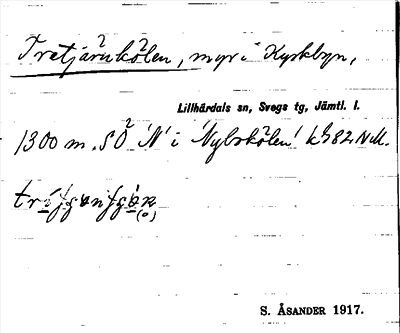 Tretjärnkölen, myr i Kyrkbyn,
Lillhärdals sn, Svegs tg, Jämtl. l.
1300 m. SÖ 'N' i 'Nybokölen' kbl 82 NM.
S. ÅSANDER 1917.